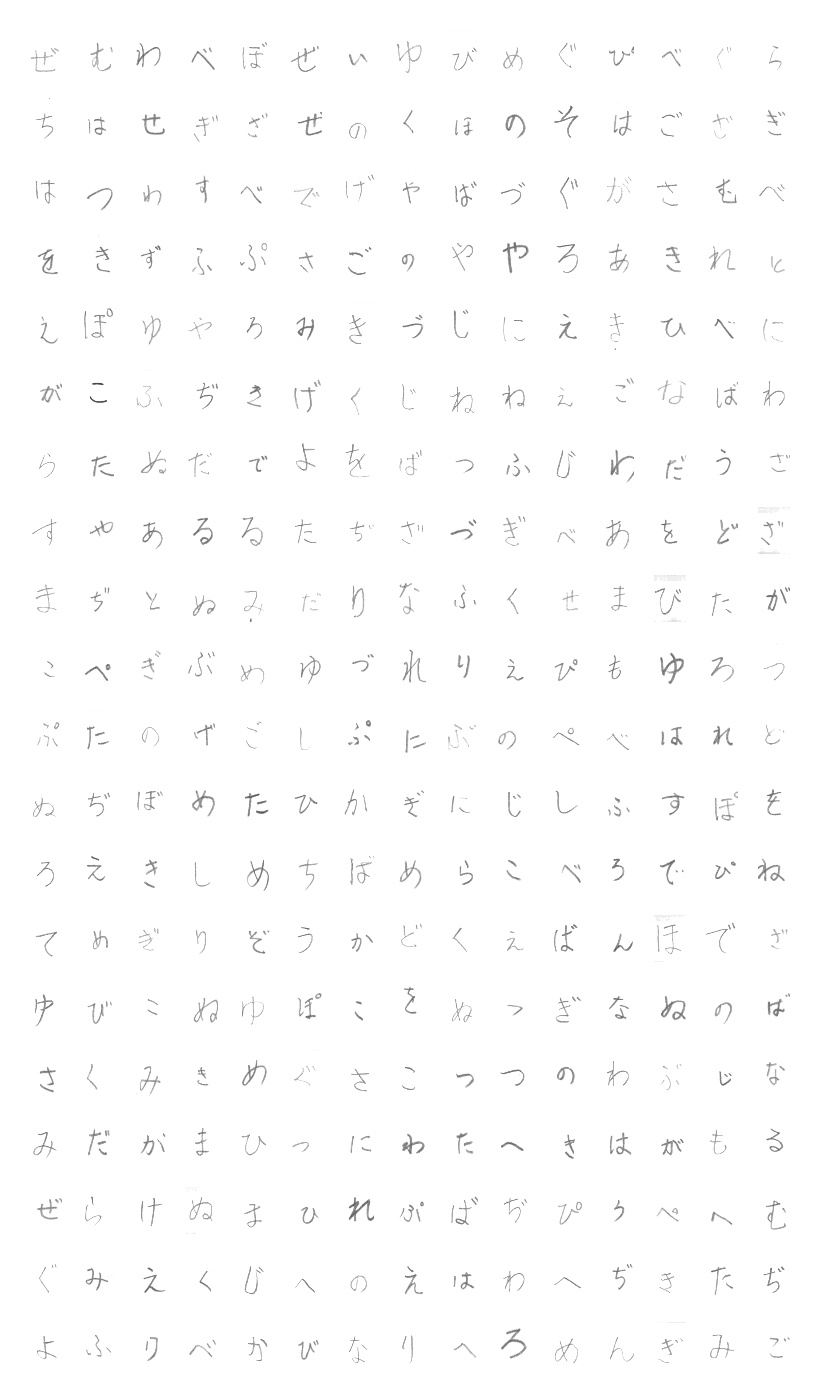 ぜむわべぼぜいゆびめぐぴべぐら
ちはせぎざぜのくほのそはござぎ
はつわすべでげやばづぐがさむべ
をきずふぷさごのややろあきれと
えぽゆやろみきづじにえきひべに
がこふぢきげくじねねえごなばわ
らたぬだでよをばつふじわだうざ
すやあるるたぢざづぎべあをどざ
まぢとぬみだりなふくせまびたが
こぺぎぶめゆづれりえぴもゆろつ
ぷたのげごしぷにぶのぺべはれど
ぬぢぼめたひかぎにじしふすぽを
ろえきしめちばめらこべろでぴね
てめぎりぞうかどくえばんほでざ
ゆびこぬゆぽこをぬっぎなぬのば
さくみきめぐさこっつのわぶじな
みだがまひっにわたへきはがもる
ぜらけぬまひれぷばぢぴうぺへむ
ぐみえくじへのえはわへぢきたぢ
よふりべかびなりへろめんぎみご